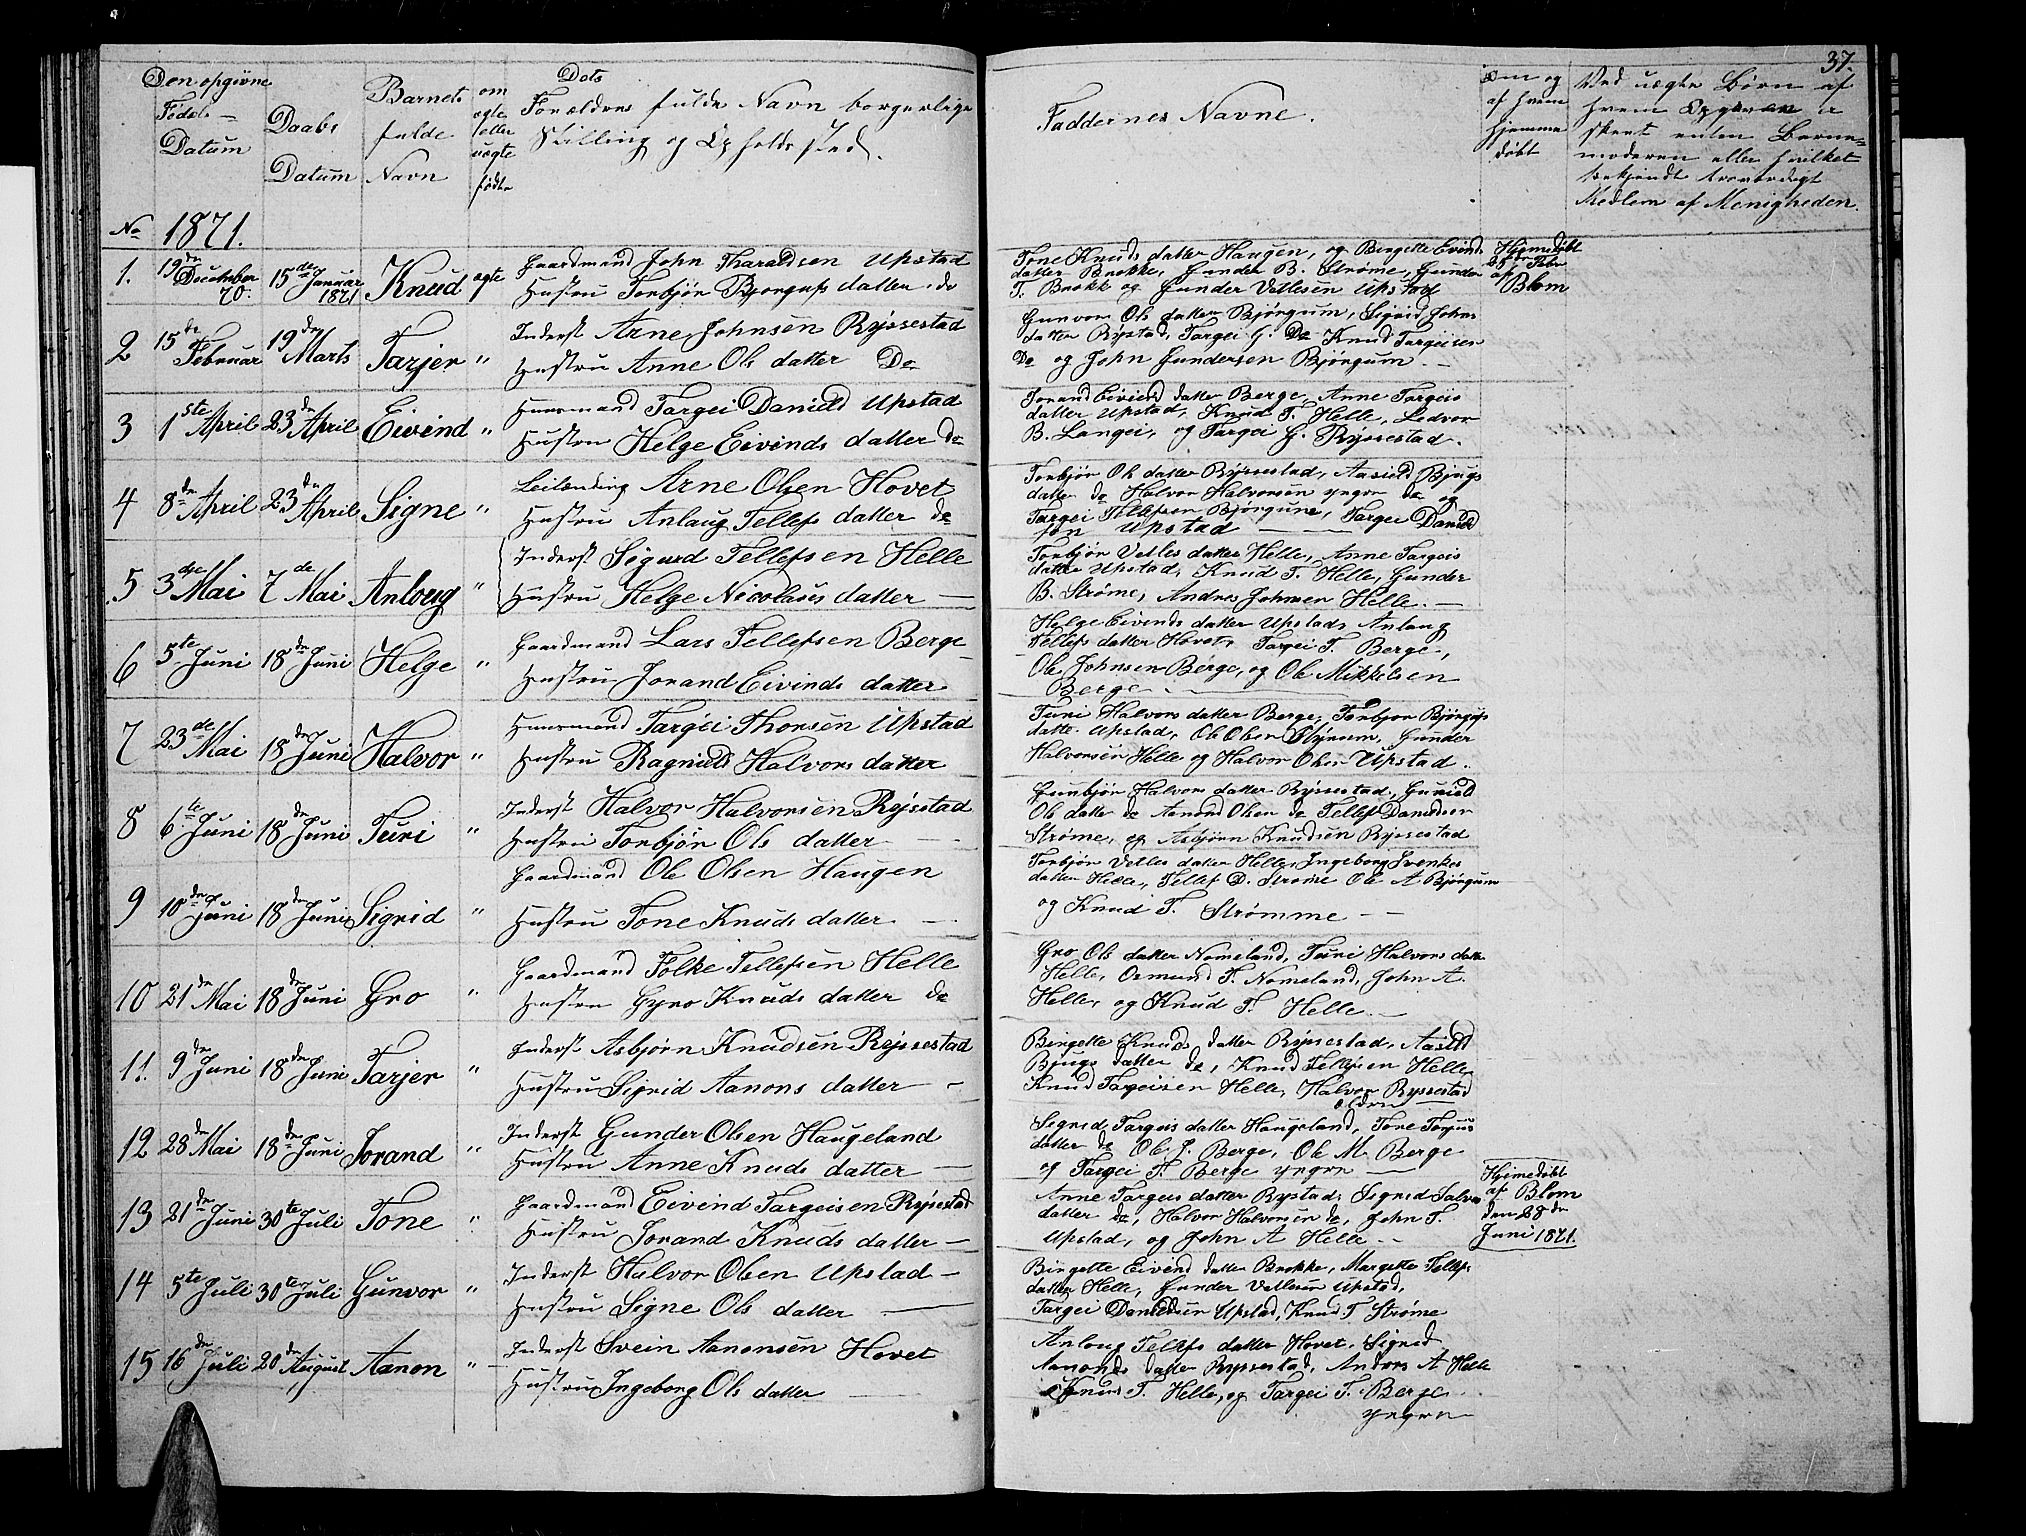 37.
Den opgivne
Føds-
Datum
Daabs
Datum
Barnets
fulde
Navn
om
ægte
eller
uægte
fødte
Dets
Forældres fulde Navn borgerlige
Stilling og Opholdssted.
Faddernes Navne.
Om og
af hvem
hjemme
døbt
Ved uægte Børn af
hvem Opgaven er
skeet enten Barne-
moderen eller hvilket
bekjendt troværdigt
Medlem af Menigheden.
No 1871.
1. 19de December 70. 15de Januar 1871 Knud ægte
Gaardmand John Tharaldsen Upstad
Hustru Torbjör Bjorgufs datter do
Tone Knuds datter Haugen, og Birgette Eivinds
datter Brokke, Gunder B. Strøme, Gunder
T. Brokk og Gunder Vetlesen Upstad
Hjemedøbt
af
Blom
2 15de Februar 19de Marts Tarjer "
Inderst Arne Johnsen Ryssestad
Hustru Anne Ols datter Do
Gunvor Ols datter Bjørgum, Sigrid Johns
datter Rystad, Targei G. Do Knud Targeisen
Do og John Gundersen Bjørgum. -
3 1ste April 23de April Eivind "
Huusmand Targei Daniels Upstad
Hustru Helge Eivinds datter do
Jorand Eivinds datter Berge, Anne Targeis
datter Upstad, Knud T. Helle, Ledvor
B. Langei, og Targei G. Ryssestad.
4 8de April 23de April Signe "
Leilænding Arne Olsen Hovet
Hustru Anlaug Tellefs datter do
Torbjör Ols datter Ryssestad, Aasild Bjugs
datter do Halvor Halvorsen yngre do og
Targei Tellefsen Bjørgum, Targei Daniel
sen Upstad
5 3dje Mai 7de Mai Anlaug "
Inderst Sigurd Tellefsen Helle
Hustru Helge Nicolaus datter -
Torbjör Vetles datter Helle, Anne Targeis
datter Upstad, Knud T. Helle, Gunder
B. Strøme, Andres Johnsen Helle. -
6 5te Juni 18de Juni Helge "
Gaardmand Lars Tellefsen Berge
Hustru Jorand Eivinds datter
Helge Eivinds datter Upstad, Anlaug
Tellefs datter Hovet, Targei T. Berge,
Ole Johnsen Berge, og Ole Mikkelsen
Berge
7 23de Mai 18de Juni Halvor "
Huusmand Targei Thorsen Upstad
Hustru Ragnild Halvors datter
Turi Halvors datter Berge, Torbjor Bjørgufs
datter Upstad, Ole Olsen Strøm, Gunder
Halvorsen Helle og Halvor Olsen Upstad.
8 6te Juni 18de Juni Turi "
Inderst Halvor Halvorsen Ryssestad
Hustru Torbjör Ols datter -
Gunbjör Halvors datter Ryssestad, Gunild
Ols datter do Aanond Olsen do Tellef Danielsen
Strøme, og Asbjørn Knudsen Ryssestad
9 10de Juni 18de Juni Sigrid "
Gaardmand Ole Olsen Haugen
Hustru Tone Knuds datter -
Torbjör Vetles datter Helle, Ingeborg Svenkes
datter Helle, Tellef D. Strøme Ole A Bjørgum
og Knud T. Strømme - -
10 21de Mai 18de Juni Gro "
Gaardmand Folke Tellefsen Helle
Hustru Gyro Knuds datter do
Gro Ols datter Nomeland, Turi Halvors datter
Helle, Osmund T. Nomeland, John A.
Helle, og Knud T. Helle. -
11. 9de Juni 18de Juni Tarjer "
Inderst Asbjørn Knudsen Ryssestad
Hustru Sigrid Aanons datter -
Birgette Knuds datter Ryssestad, Aasild
Bjugs datter do, Knud Folkesen Helle
Knud Targeisen Helle, Halvor Ryssestad
ældre
12 28de Mai 18de Juni Jorand "
Inderst Gunder Olsen Haugeland
Hustru Anne Knuds datter -
Sigrid Targeis datter Haugeland, Tone Torjus
datter do Ole J. Berge, Ole M. Berge
og Targei T. Berge yngre
13 21de Juni 30te Juli Tone "
Gaardmand Eivind Targeisen Ryssestad
Hustru Jorand Knuds datter -
Anne Targeis datter Rystad, Sigrid Salve
datter do, Halvor Halvorsen do, John T.
Upstad, og John A Helle - -
Hjemedöbt
af Blom
den 28de
Juni 1871.
14 5te Juli 30te Juli Gunvor "
Inderst Halvor Olsen Upstad -
Hustru Signe Ols datter
Birgette Eivind datter Brokke, Margette Tellefs
datter Helle, Gunder Vetlesen Upstad,
Targei Danielsen Upstad, Knud T Strøme
15 16de Juli 20de August Aanon "
Inderst Svein Aanonsen Hovet
Hustru Ingeborg Ols datter
Anlaug Tellefs datter Hovet, Sigrid
Aanonds datter Ryssestad, Anders A Helle
Knud T. Helle, og Targei T. Berge
yngre